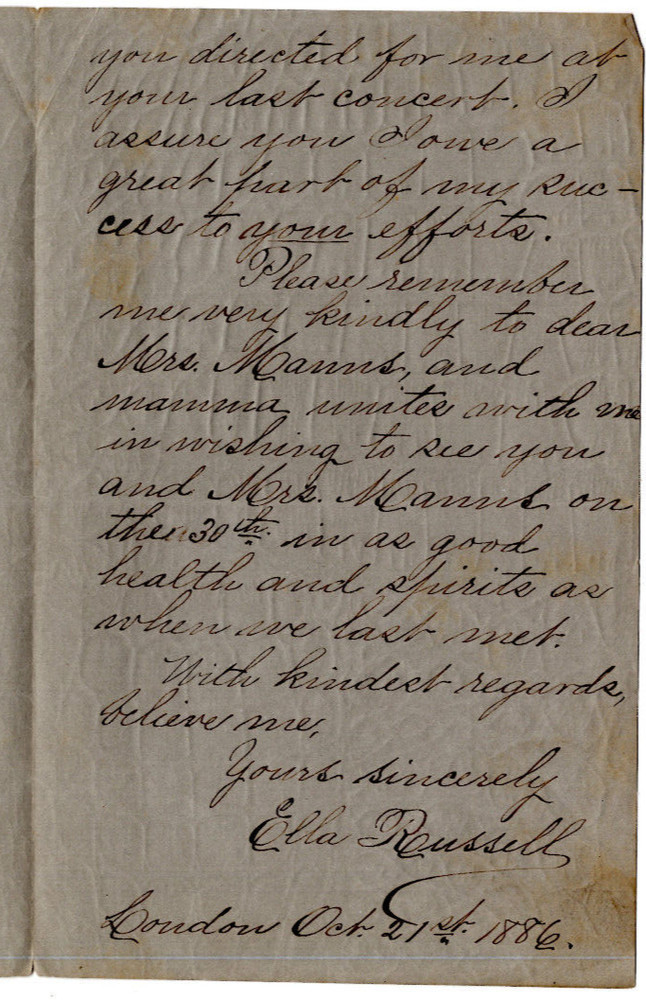 you directed for me at
your last concert. I
assure you I owe a
great part of my suc-
cess to your efforts.
Please remember
me very kindly to dear
Mrs. Manns, and
mamma unites with me
in wishing to see you
and Mrs. Manns on
the 30th. in as good
health and spirits as
when we last met.
With kindest regards,
believe me,
Yours sincerely
Ella Russell
London Oct. 21st. 1886.